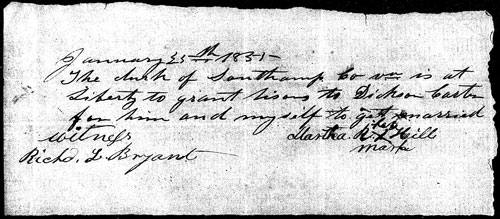 January 25th 1851
The clerk of Southamp Co va is at
liberty to grant lisons to Dickson Carter
for him and myself to get married
witness Martha R. L Hill
Richd. L Bryant mark